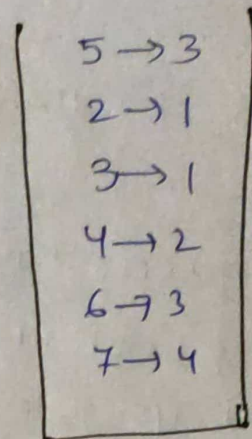 5 → 3
2 → 1
3 → 1
4 → 2
6 → 3
7 → 4